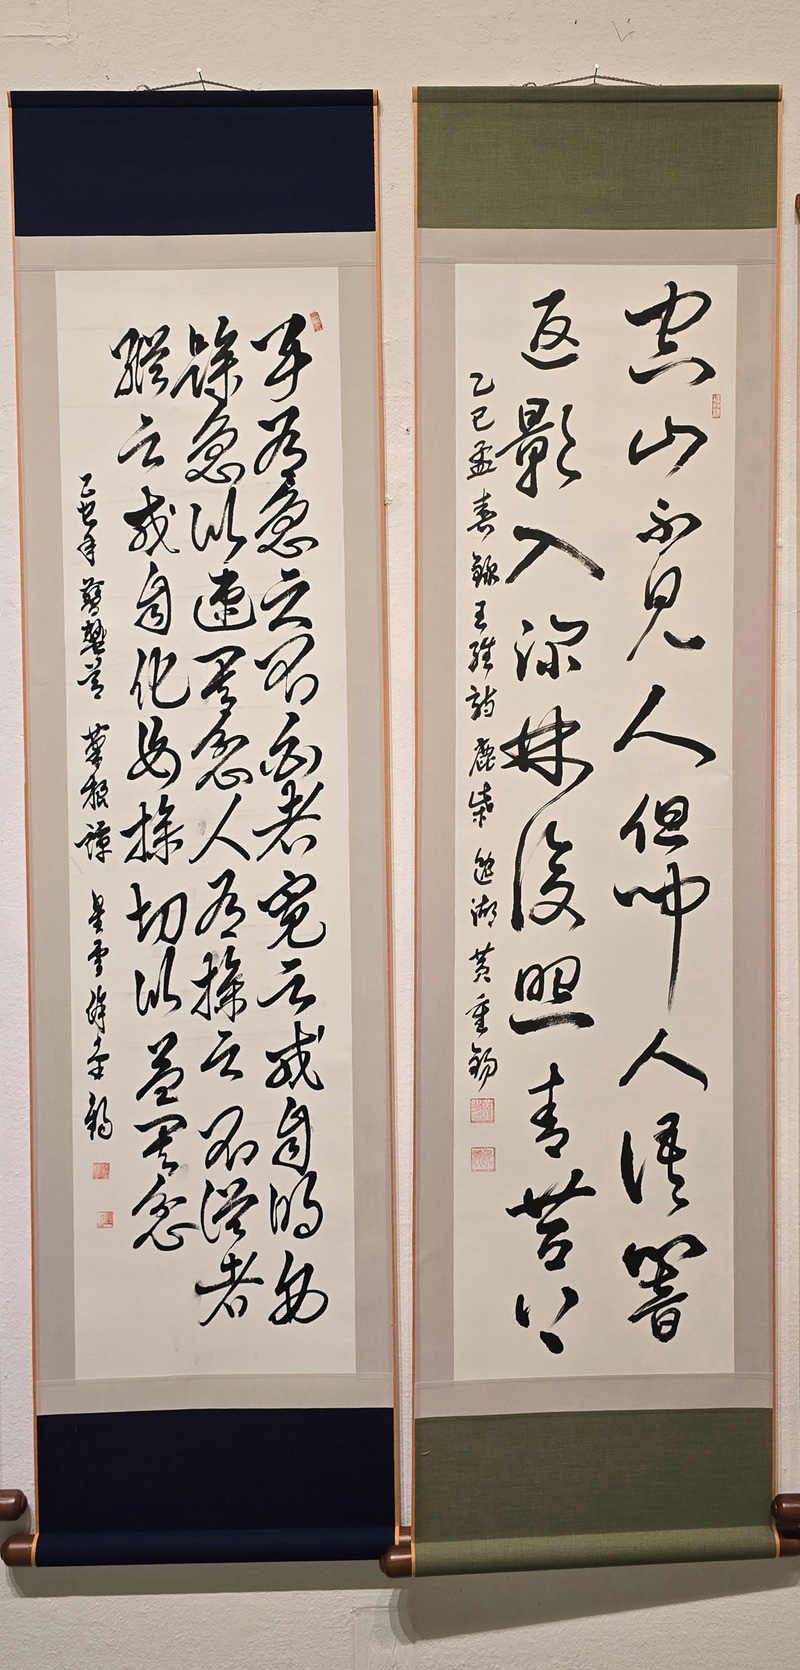 空山不見人但聞人語響
返影入深林復照青苔上
乙巳孟春錄王維詩鹿柴 湖 黃重錫
事有急之不白者寬之或自明毋
躁急以速其忿人有操之不從者
縱之或自化毋操切以益其忿
乙巳年 驚蟄節 菜根譚